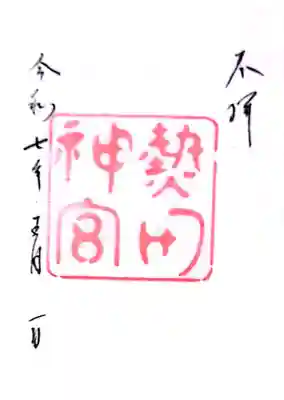 奉拝
熱田
神宮
令和七年五月一日